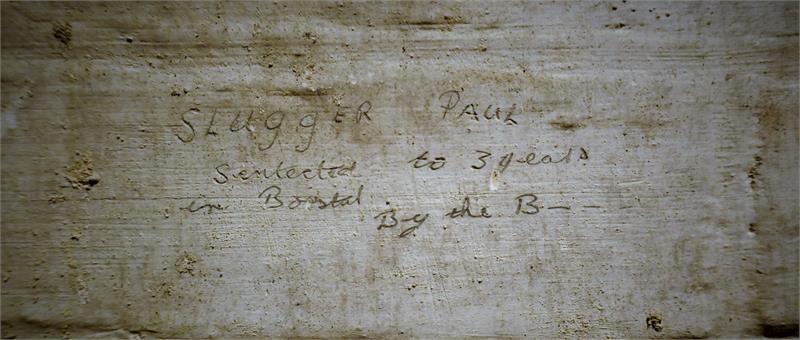 SLUggER PAUL
Sentected to 3 years
in Borstal.
By the B---